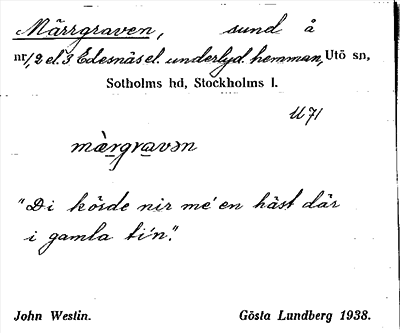 Märrgraven, sund å
nr 1, 2 el. 3 Edesnäs el. underlyd. hemman, Utö sn,
Sotholms hd, Stockholms l.
U 71
mæ̀rgravən
"Di körde nir mé en häst där
i gamla ti'n".
John Westin. Gösta Lundberg 1938.